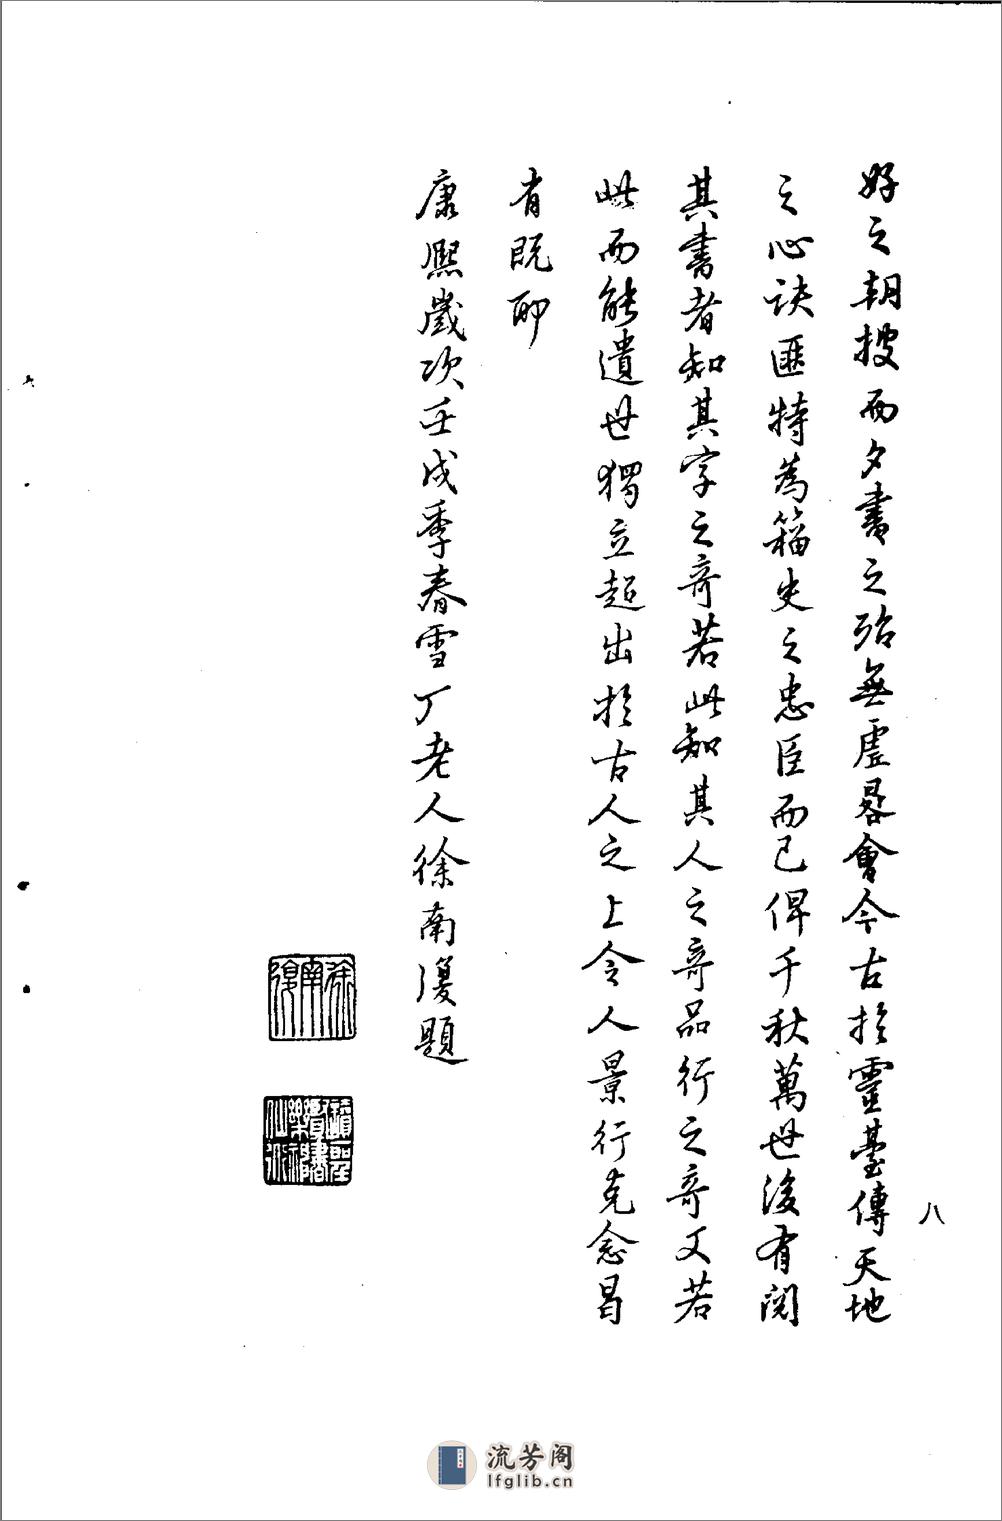 好之朝搜而夕書之殆無虛晷會今古扵靈臺傳天地
之心訣匪特為籀史之忠臣而已俾千秋萬世後有閱
其書者知其字之奇若此知其人之奇品行之奇又若
此而能遺世獨立超出扵古人之上令人景行克念曷
有既耶
康熈歲次壬戌季春雪丁老人徐南復題
徐南復
八
流芳阁
lfglib.cn